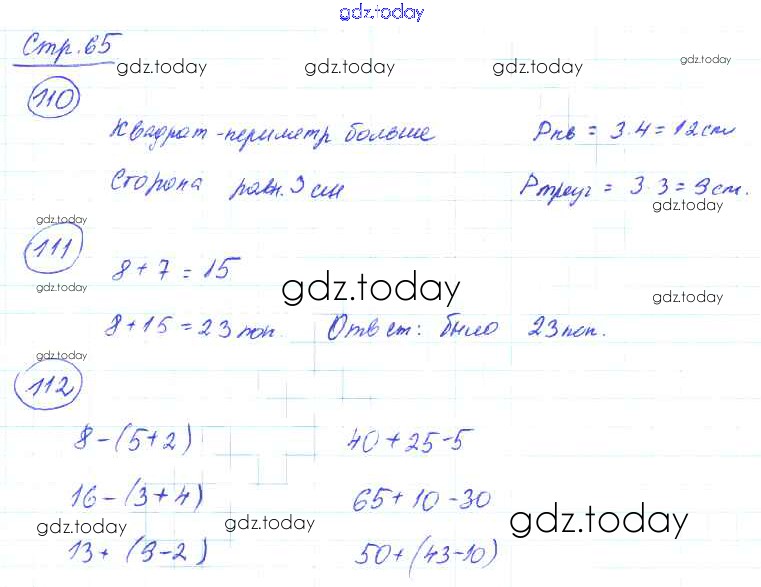 gdz.today
Стр. 65
gdz.today gdz.today gdz.today gdz.today
110
Квадрат - периметр больше Pкв = 3·4 = 12 см
Сторона равн. 3 см Pтреуг = 3·3 = 9 см.
gdz.today
gdz.today
111
8 + 7 = 15
gdz.today gdz.today gdz.today
8 + 15 = 23 поп. Ответ: было 23 поп.
gdz.today
112
8 - (5 + 2) 40 + 25 - 5
16 - (3 + 4) 65 + 10 - 30
gdz.today gdz.today gdz.today
13 + (9 - 2) 50 + (43 - 10)